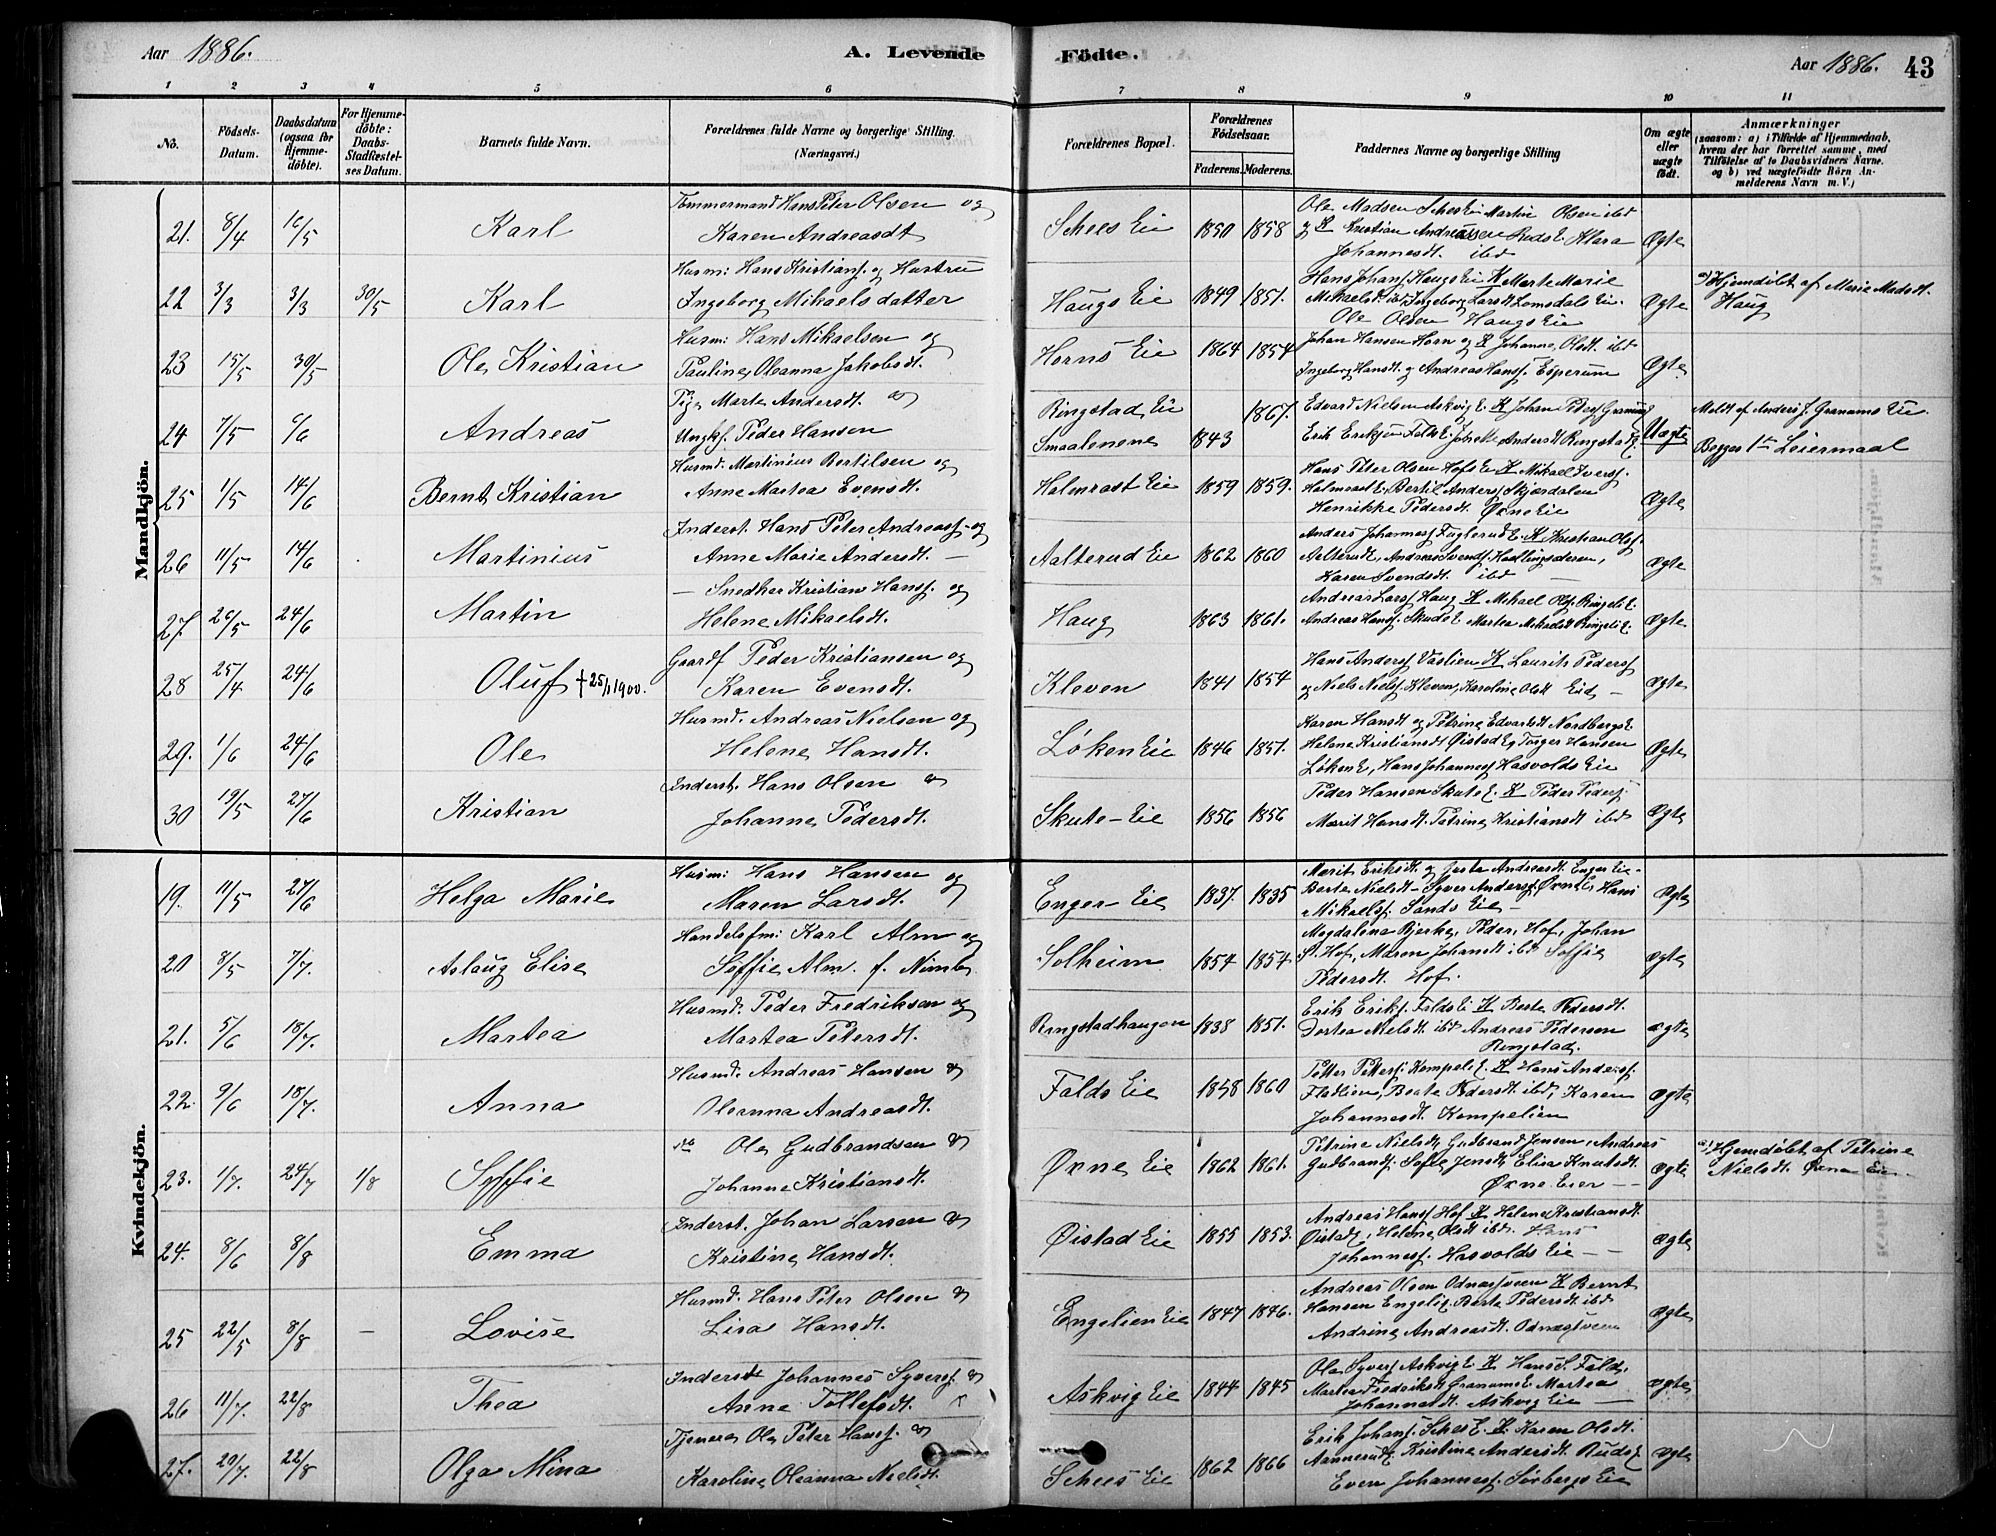 Aar 1886. A. Levende Födte. Aar 1886. 43
1 2 3 4 5 6 7 8 9 10 11
No. Födsels-Datum. Daabsdatum (ogsaa for Hjemme-döbte). For Hjemme-döbte: Daabs-Stadfæstel-ses Datum. Barnets fulde Navn. Forældrenes fulde Navne og borgerlige Stilling. (Næringsvei.) Forældrenes Bopæl. Forældrenes Födselsaar. Faderens. Moderens. Faddernes Navne og borgerlige Stilling Om ægte eller uægte födt. Anmærkninger (saasom: a) i Tilfælde af Hjemmedaab, hvem der har forrettet samme, med Tilföielse af to Daabsvidners Navne. og b) ved uægtefödte Börn An-melderens Navn m. V.)
Mandkjön.
Tømmermand Hans Peter Olsen og Ole Madsen Schees Ei Martin Olsen ibd
21. 8/4 16/5 Karl Karen Andreasdt Schees Eie 1850 1858 og K Kristian Andreassen Ruds E. Klara Ægte
Johannesdt. ibd
Husm: Hans Kristians. og Hustru Hans Johans. Haugs Eie K Marte Marie a) Hjemdøbt af Marie Madsdt.
22 3/3 3/3 30/5 Karl Ingeborg Mikaelsdatter Haugs Eie 1849 1851. Mikaelsdt. ibd Ingeborg Larsdt Lomsdals Eie. Ægte Haug
Ole Olsen Haugs Eie
Husm: Hans Mikaelsen og Johan Hansen Horn og K Johanne Olsdt. ibd
23 15/5 30/5 Ole Kristian Pauline Oleanna Jakobsdt. Horns Eie 1864 1854 Ingeborg Hansdt. og Andreas Hanss. Esperum Ægte
Pige Marte Andersdt. og Ringstad Eie 1867. Edvard Nielsen Askvig E. K Johan Peders. Meldt af Anders J. Granums Eie.
24 7/5 6/6 Andreas Ungk. Peder Hansen Smaalenene 1843 Erik Eriksen Falds E. Andersdt Ringstad E. Uægte Begges 1ste Leiermaal
Husmd. Martinius Bertilsen og Hans Peter Olsen Hofs E. K Mikael Ivers.
25 1/5 14/6 Bernt Kristian Anne Martea Evensdt. Halmrast Eie 1859 1859. Halmrast E. Bertil Anders. Skjærdalen Ægte
Henrikke Pedersdt. Øvne Eie
Inderst. Hans Peter Andreass. og Anders Johanness. Fuglerud E. K Kristian Ols.
26 11/5 14/6 Martinius Anne Marie Andersdt. — Aalterud Eie 1862 1860 Aalterud E, Andreas Svends. Ægte
Karen Svendsdt. ibd —
— Snedker Kristian Hans. og Andreas Lars. Haug K Mikael Ols. Ringeli E.
27. 26/5 24/6 Martin Helene Mikaelsdt. Haug 1863 1861. Andreas Hans. Skuds E Martea Mikaelsdt Ringeli E. Ægte
Gaardf Peder Kristiansen og Hans Anders. Vaslien K Laurits Peders
28 25/4 24/6 Oluf † 25/1 1900. Karen Evensdt. Kleven 1841 1854 og Niels Niels. Kleven, Karoline Olsdt Eid — Ægte
Husmd. Andreas Nielsen og Karen Hansdt og Petrine Edvartsdt Nordbergs E.
29. 1/6 24/6 Ole Helene Hansdt. Løken Eie 1846 1851. Helene Kristiansdt Øistad Eg Torger Hansen Ægte
Løken E, Hans Johanness Hasvolds Eie
Inderst. Hans Olsen og Peder Hansen Skute E. K Peder Peders.
30 19/5 27/6 Kristian Johanne Pedersdt. Skute-Eie 1856 1856 Marit Hansdt. Petrine Kristiansdt ibd Ægte
Kvindekjön.
Husm: Hans Hansen og Marit Eriksdt. og Andreasdt. Enger Eie -
19. 11/5 27/6 Helga Marie Maren Larsdt. Enger-Eie 1837. 1835 Berte Nielsdt - Syver Anders. Øvne E, Hans Ægte
Mikaels. Sands Eie —
Handelsfm: Karl Alm og Magdalena Bjerke, Peder, Hof, Johan
20 8/5 7/7. Aslaug Elise Soffie Alm. f. Solheim 1854 1854. Hof, Maren Johansdt ibd Soffie Ægte
Pedersdt. Hof.
Husmd. Peder Fredriksen og Erik Eriks. Falds E. K Berte Pedersdt.
21. 5/6 18/7. Martea Martea Petersdt. Ringstadhaugen 1838 1851. Dortea Nielsdt. ibd Andreas Pedersen Ægte
Ringstad.
Husmd. Andreas Hansen og Petter Petters. Kompeli E. K Hans Anders.
22. 9/6 18/7. Anna Oleanna Andreasdt. Falds Eie 1858 1860 Fladlien, Beate Pedersdt ibd, Karen Ægte
Johannesdt. Kompelien
do Ole Gudbrandsen og Petrine Nielsdt, Gudbrand Jensen, Andreas a) Hjemdøbt af Petrine
23. 1/7. 24/7 1/8 Soffie Johanne Kristiansdt. Øvne Eie 1862 1861. Gudbrands. Sofie Jensdt, Elise Knutsdt. Ægte Nielsdt. Øvne Eie
Øvne Eier —
Inderst. Johan Larsen og Andreas Hans. Hof K Helene Kristiansdt.
24. 8/6 8/8 Emma Kristine Hansdt. Øistad Eie 1855 1853. Øistad E, Helene Olsdt ibd. Hans Ægte
Johanness. Hasvolds Eie —
Husmd. Hans Peter Olsen og Andreas Olsen Odnæsveen K Bernt
25 22/5 8/8 — Lovise Lisa Hansdt. Engelien Eie 1847 1846. Hansen Engeli E. Berte Pedersdt ibd Ægte
Andrine Andreasdt. Odnæsveen
Inderst Johannes Syvers. og Ole Syvers. Askvig E K Hans S. Fald,
26 11/7. 22/8 Thea Anne Tollefsdt. Askvig Eie 1844 1845 Martea Fredriksdt Granum E. Martea Ægte
Johannesdt. Askvig Eie —
Tjener Ole Peter Hans. og Erik Johans. Schees E. K. Karen Olsdt.
27. 20/7. 22/8 Olga Mina Karoline Oleanna Nielsdt. Schees Eie 1862 1866 Aannerud, Kristine Andersdt. Ruds E. Ægte
Even Johanness. Sørbergs Eie